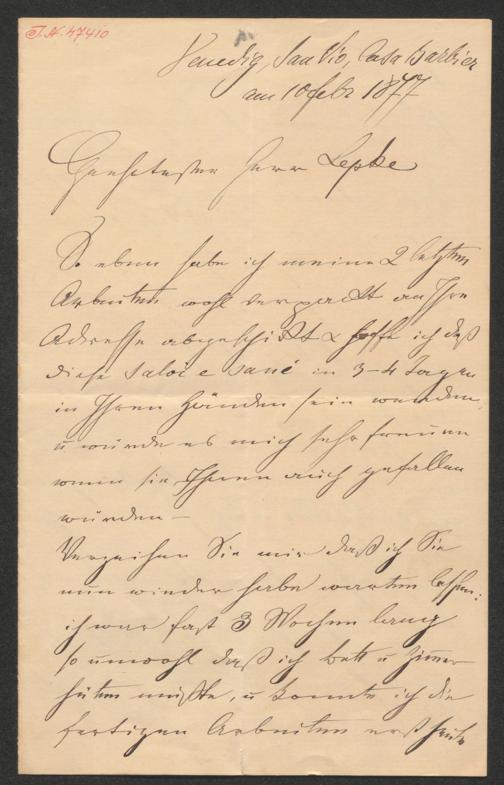 J.N. 47410
Venedig, San Vio, Casa Barbier
am 10 febr 1877
Geehrtester Herr Lepke
So eben habe ich meine 2 letzten
Arbeiten wohl verpackt an Ihre
Adresse abgeschickt & hoffe ich daß
diese salvi e sani in 3-4 Tagen
in Ihren Händen sein werden,
u würde es mich sehr freuen
wenn sie Ihnen auch gefallen
würden —
Verzeihen Sie mir daß ich Sie
nun wieder habe warten lassen:
ich war fast 3 Wochen lang
so unwohl daß ich bett u Zimer
hüten mußte, u konnte ich die
fertigen Arbeiten erst heute